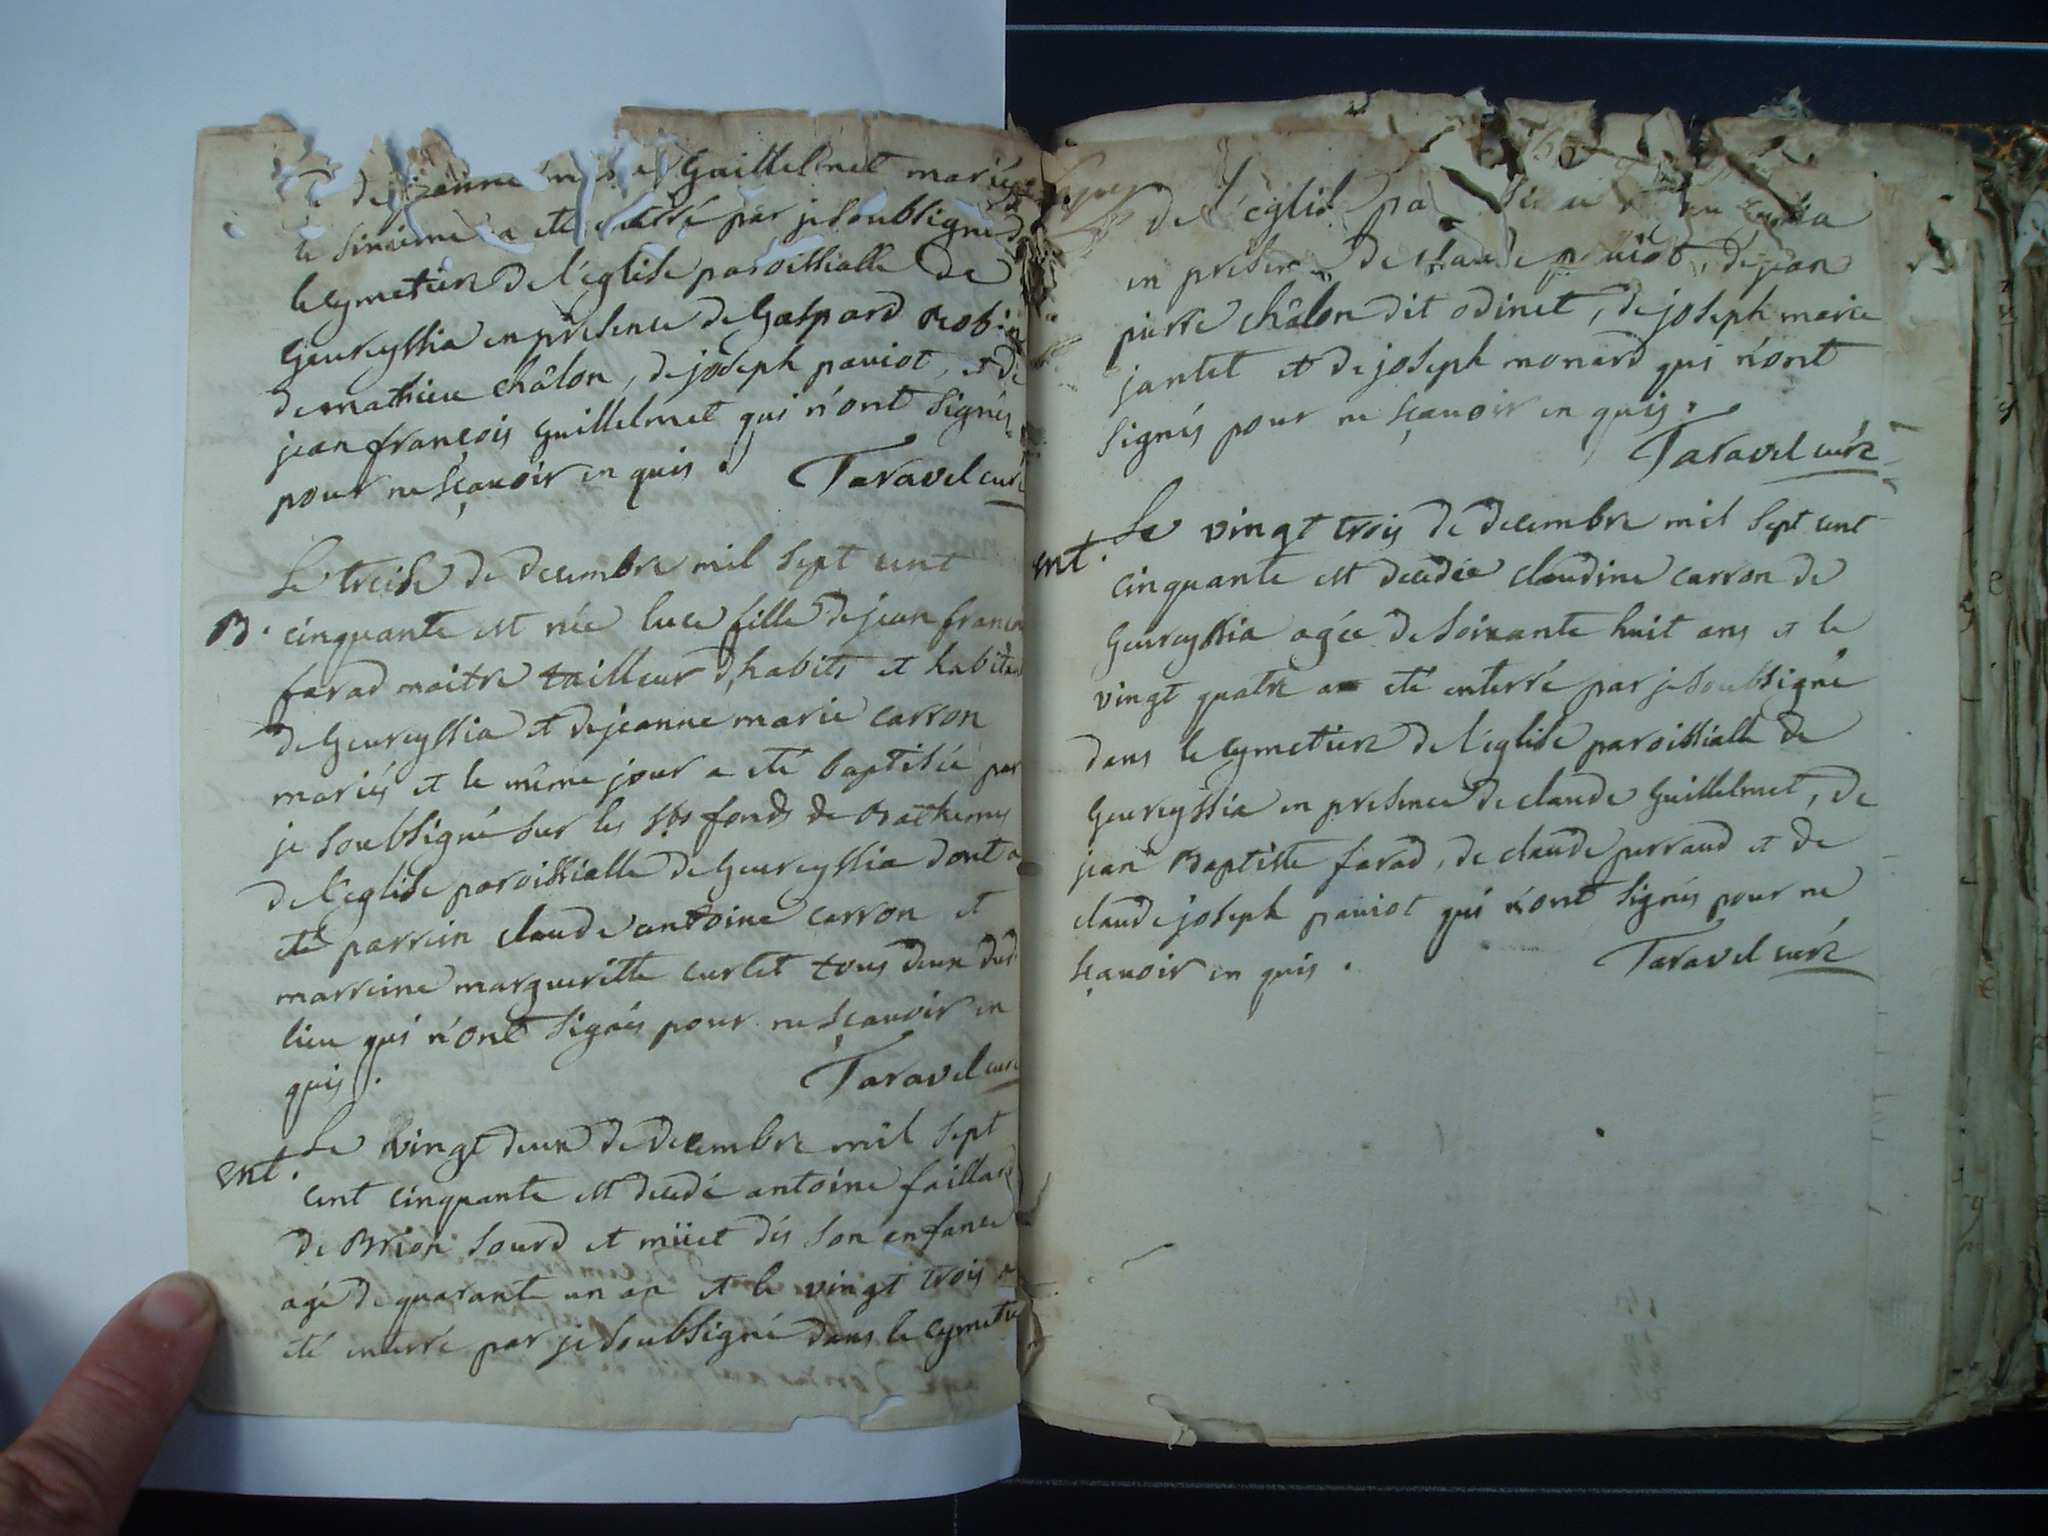 de jeanne Guillelmet mariés
le sixieme a eté enterré par je soubsigné d
le cymetiere de l'eglise paroissialle de
Geureyssia en presence de Gaspard Robin
de mathieu châlon, de joseph paviot, et de
jean françois Guillelmet qui n'ont signés
pour ne sçavoir en quis. Taravel curé
Le treise de decembre mil sept cent
B. cinquante est née luce fille de jean françois
farad maitre tailleur d'habits et habitant
de Geureyssia et de jeanne marie carron
mariés et le même jour a eté baptisée par
je soubsigné sur les sts fonds de Bathemes
de l'eglise paroissialle de Geureyssia dont a
eté parrein claude antoine carron et
marreine margueritte curlet tous deux dud
lieu qui n'ont signés pour ne sçavoir en
quis. Taravel curé
Le vingt deux de decembre mil sept
ent. cent cinquante est decedé antoine faillard
de Brion sourd et müet dés son enfance
agé de quarante un an et le vingt trois a
eté enterré par je soubsigné dans le cymetie
de l'eglise
en presence de claude paviot, de jean
pierre châlon dit odinet, de joseph marie
jantet et de joseph monard qui n'ont
signés pour ne sçavoir en quis.
Taravel curé
Le vingt trois de decembre mil sept cent
ent. cinquante est decedée claudine carron de
Geureyssia agée de soixante huit ans et le
vingt quatre a eté enterré par je soubsigné
dans le cymetiere de l'eglise paroissialle de
Geureyssia en presence de claude Guillelmet, de
jean Baptiste farad, de claude perraud et de
claude joseph paviot qui n'ont signés pour ne
sçavoir en quis. Taravel curé